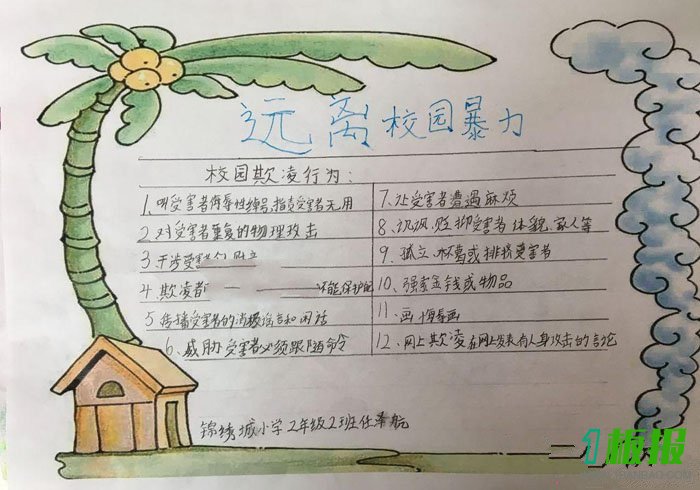 远离校园暴力
校园欺凌行为：
1、叫受害者侮辱性绰号,指责受害者无用
2、对受害者重复的物理攻击
3、干涉受害
4、欺凌者
不能保护
5、传播受害者的消极谣言和闲话
6、威胁受害者必须跟随命令
7、让受害者遭遇麻烦
8、讥讽、贬抑受害者体貌、家人等
9、孤立、杯葛或排挤受害者
10、强索金钱或物品
11、画侮辱画
12、网上欺凌在网上发表有人身攻击的言论
锦绣城小学2年级2班任泽航
板报